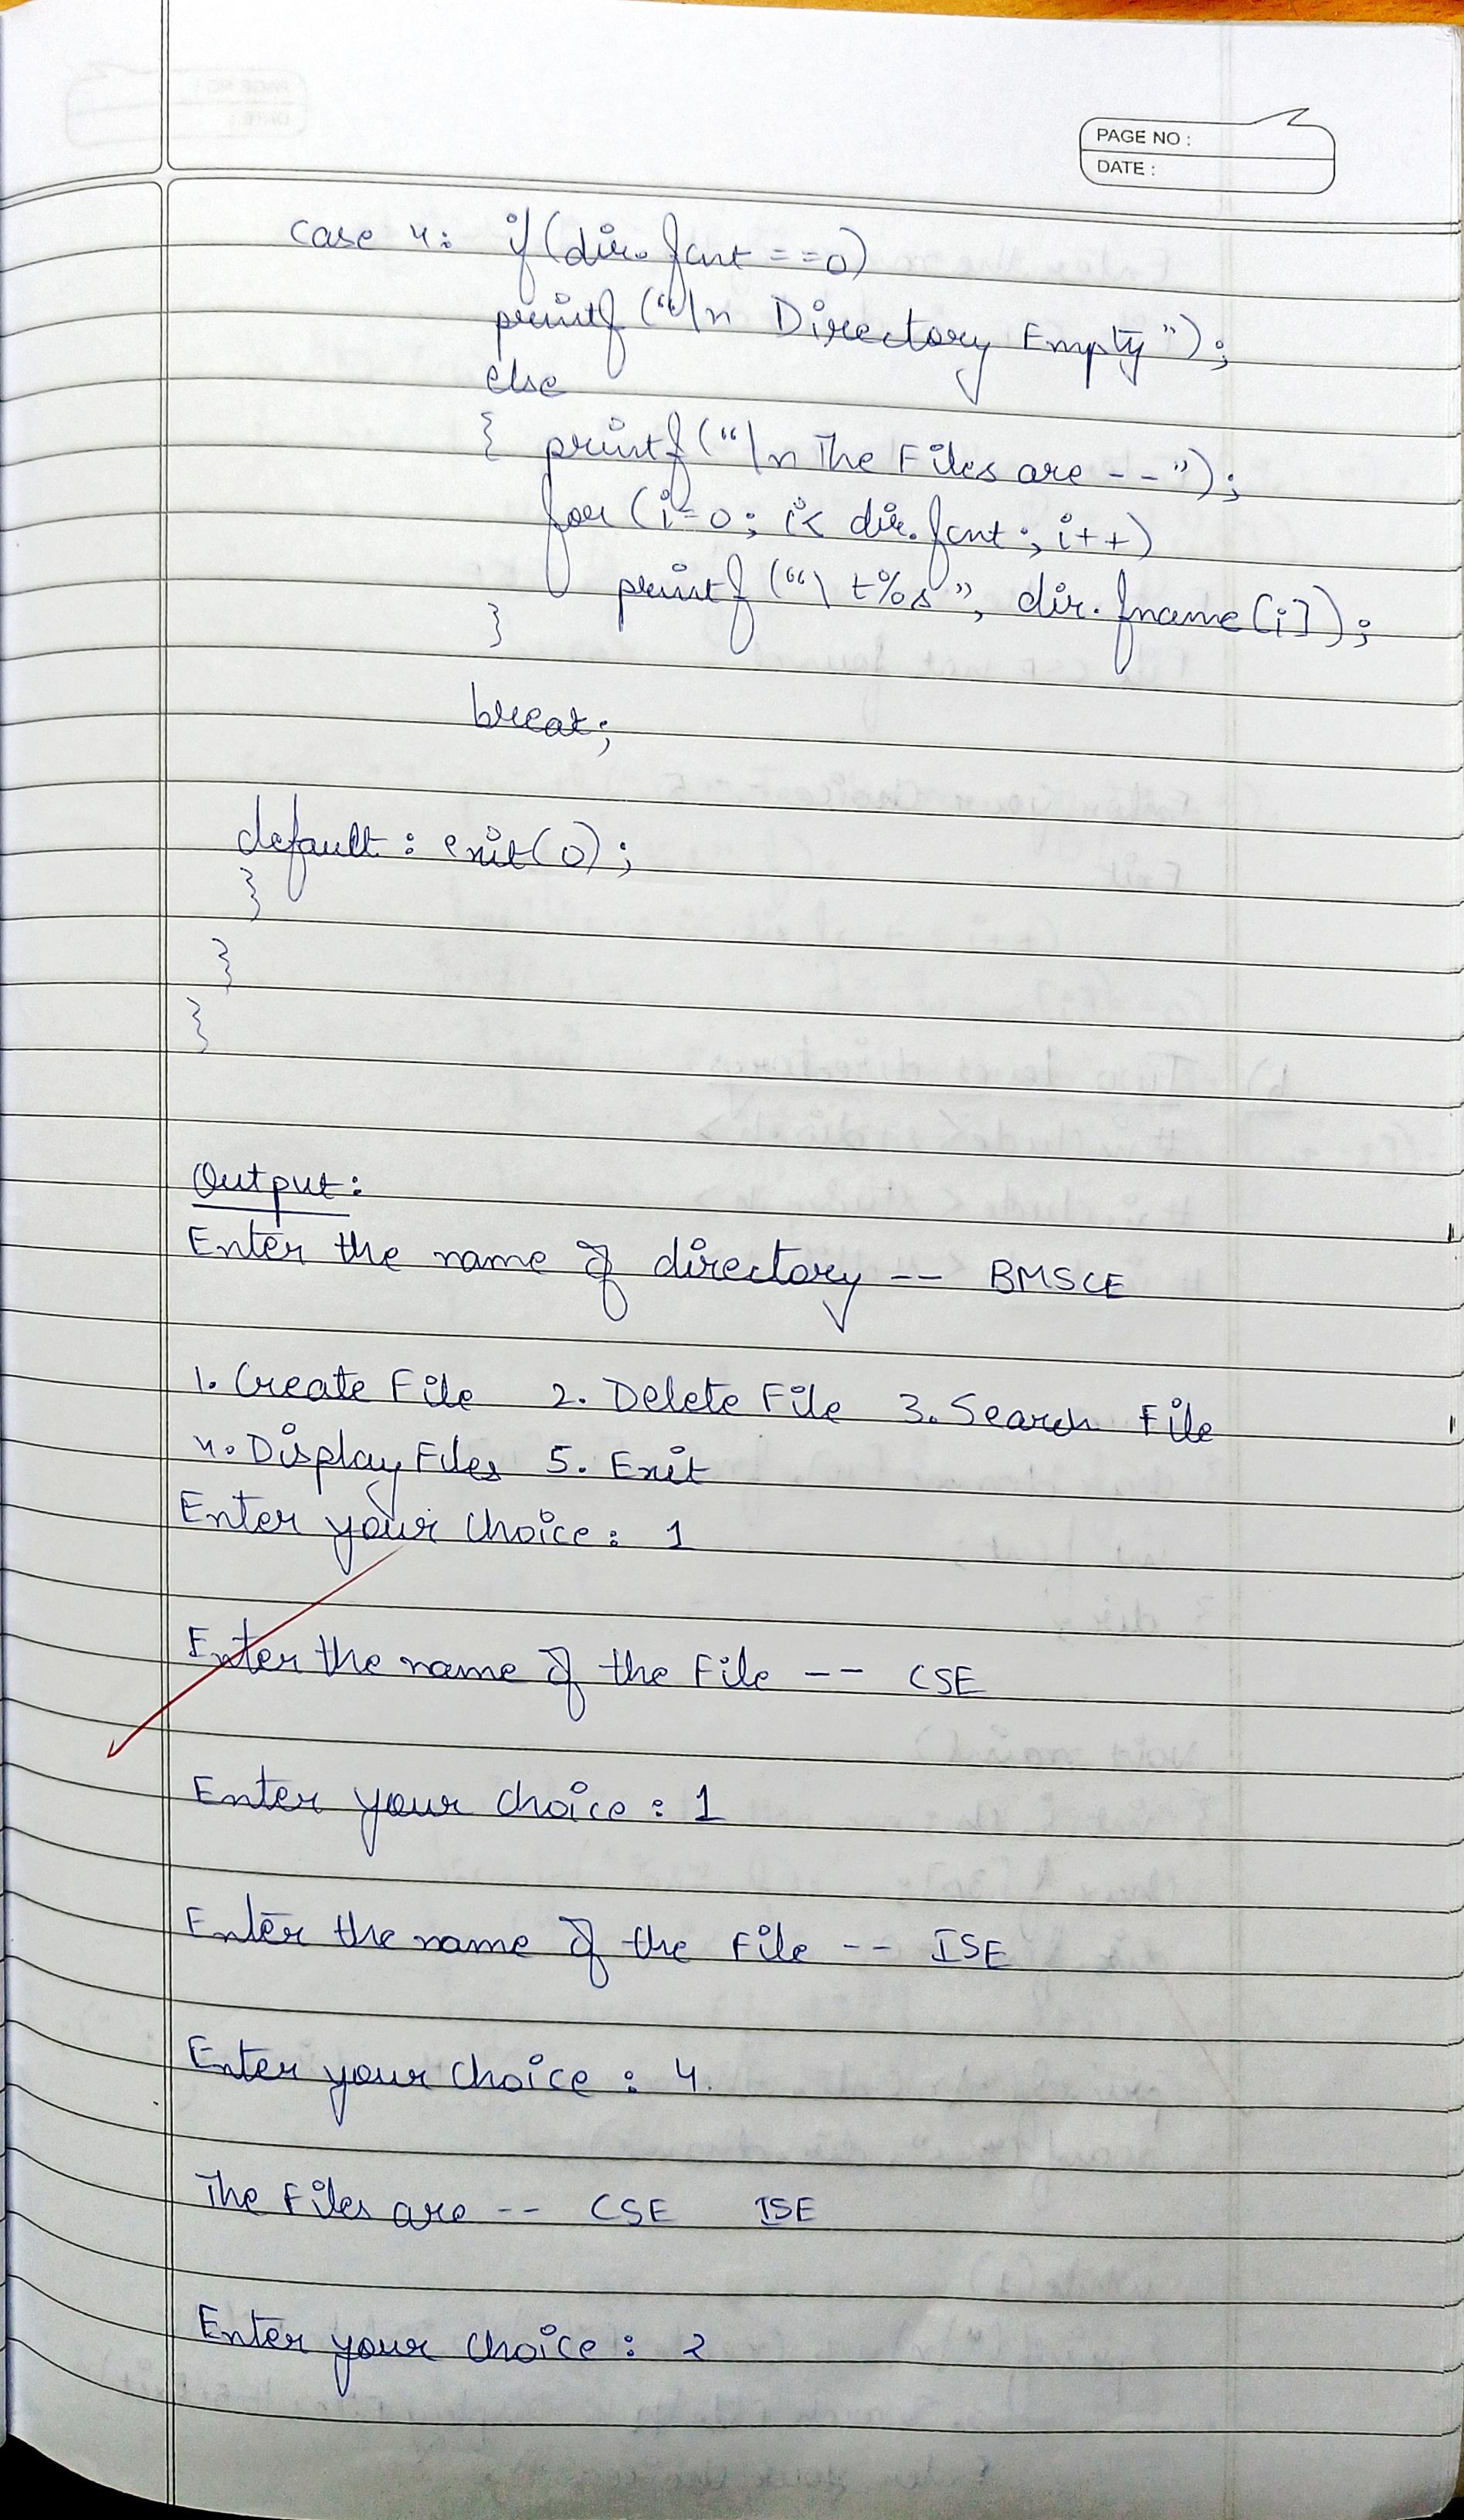 PAGE NO :
DATE :
case 4: if(dir.fcnt==0)
printf("\n Directory Empty");
else
{ printf("\n The Files are --");
for(i=0; i< dir.fcnt; i++)
printf("\t%s", dir.fname[i]);
}
break;
default: exit(0);
}
}
}
Output:
Enter the name of directory -- BMSCE
1. Create File 2. Delete File 3. Search File
4. Display Files 5. Exit
Enter your choice: 1
Enter the name of the File -- CSE
Enter your choice: 1
Enter the name of the File -- ISE
Enter your choice: 4.
The Files are -- CSE ISE
Enter your choice: 2